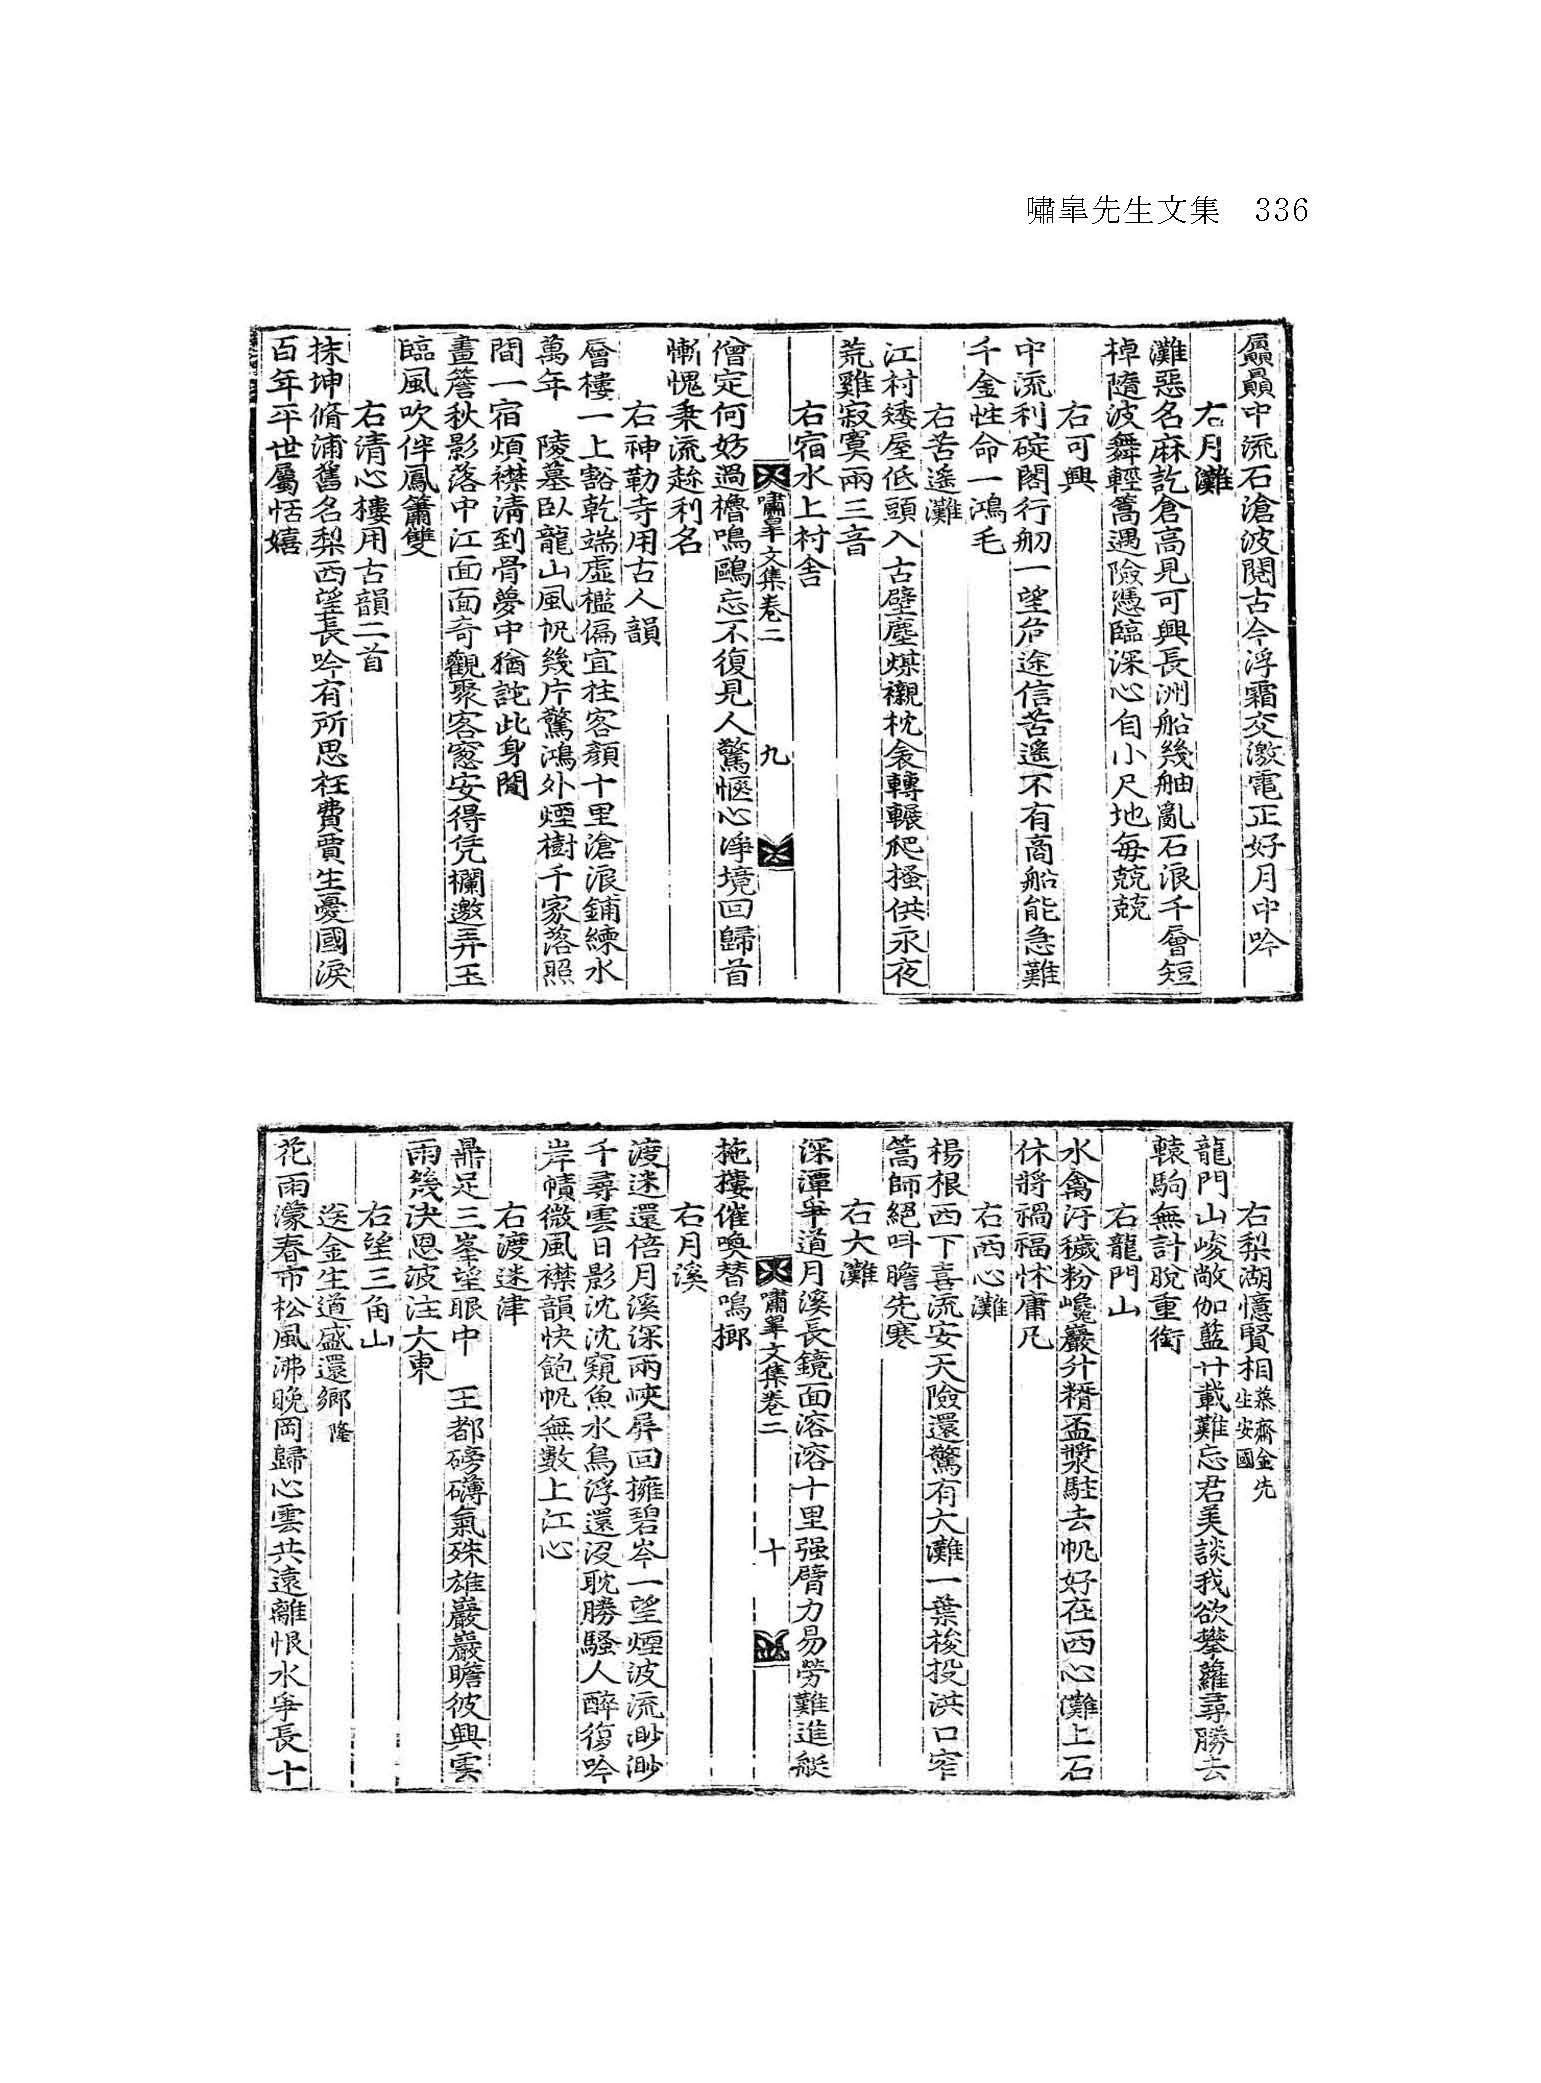 嘯皐先生文集 336
贔贔中流石滄波閱古今浮霜交激電正好月中吟
右月灘
灘惡名麻訖倉高見可興長洲船幾舳亂石浪千層短
棹隨波舞輕篙遇險憑臨深心自小尺地每兢兢
右可興
中流利碇閣行舠一望危途信苦遙不有商船能急難
千金性命一鴻毛
右苦遙灘
江村矮屋低頭入古壁塵煤襯枕衾轉輾爬搔供永夜
荒雞寂寞兩三音
右宿水上村舍
嘯皐文集卷二 九
僧定何妨過櫓鳴鷗忘不復見人驚愜心淨境回歸首
慚愧乘流趂利名
右神勒寺用古人韻
層樓一上豁乾端虛檻偏宜拄客顏十里滄浪鋪練水
萬年 陵墓臥龍山風帆幾片驚鴻外煙樹千家落照
間一宿煩襟淸到骨夢中猶詫此身閒
畫簷秋影落中江面面奇觀聚客窓安得凭欄邀弄玉
臨風吹伴鳳簫雙
右清心樓用古韻二首
抹坤脩浦舊名梨西望長吟有所思枉費賈生憂國淚
百年平世屬恬嬉
右梨湖憶賢相慕齋金先生安國
龍門山峻敞伽藍廿載難忘君美談我欲攀蘿尋勝去
轅駒無計脫重銜
右龍門山
水禽汙穢粉巉巖升糈盃漿駐去帆好在西心灘上石
休將禍福怵庸凡
右西心灘
楊根西下喜流安天險還驚有大灘一葉梭投洪口窄
篙師絕叫膽先寒
右大灘
深潭爭道月溪長鏡面溶溶十里强臂力易勞難進艇
拖摟催喚替鳴榔
嘯皐文集卷二 十
右月溪
渡迷還倍月溪深兩峽屛回擁碧岑一望煙波流渺渺
千尋雲日影沈沈窺魚水鳥浮還沒耽勝騷人醉復吟
岸幘微風襟韻快飽帆無數上江心
右渡迷津
鼎足三峯望眼中 王都磅礴氣殊雄巖巖瞻彼興雲
雨幾決恩波注大東
右望三角山
送金生道盛還鄉隆
花雨濛春市松風沸晚岡歸心雲共遠離恨水爭長十